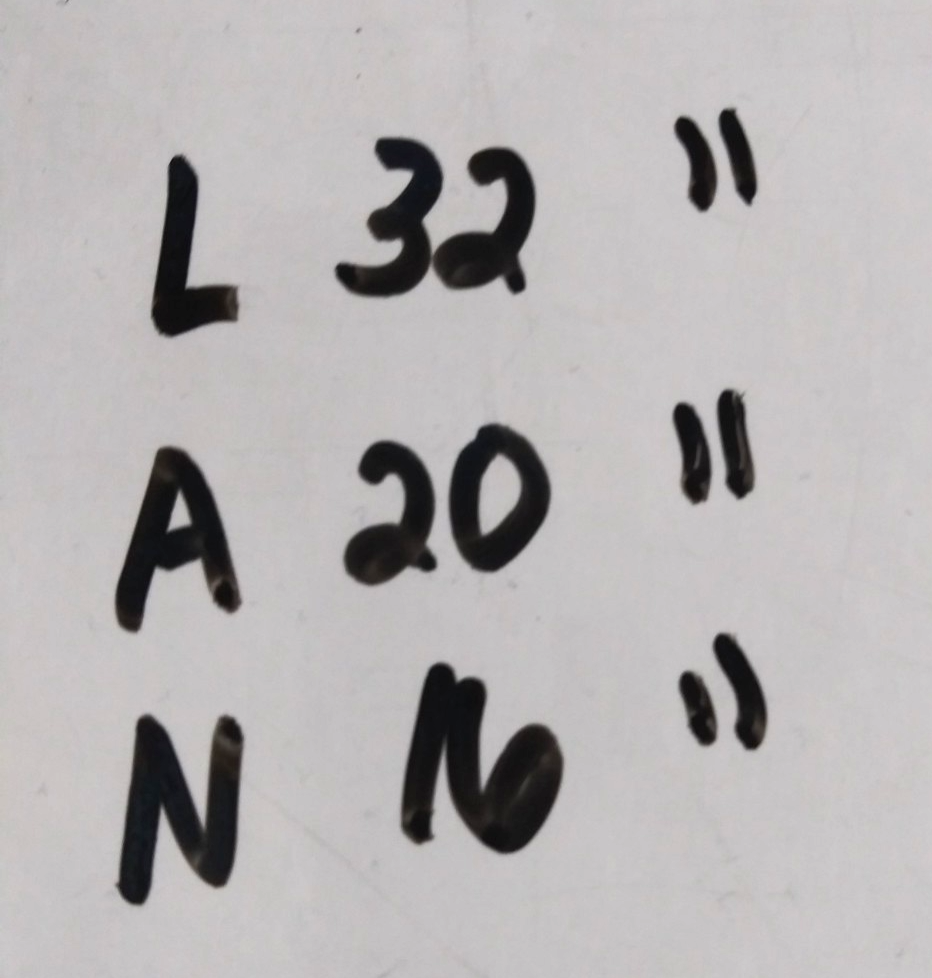 L 32 "
A 20 "
N 16 "